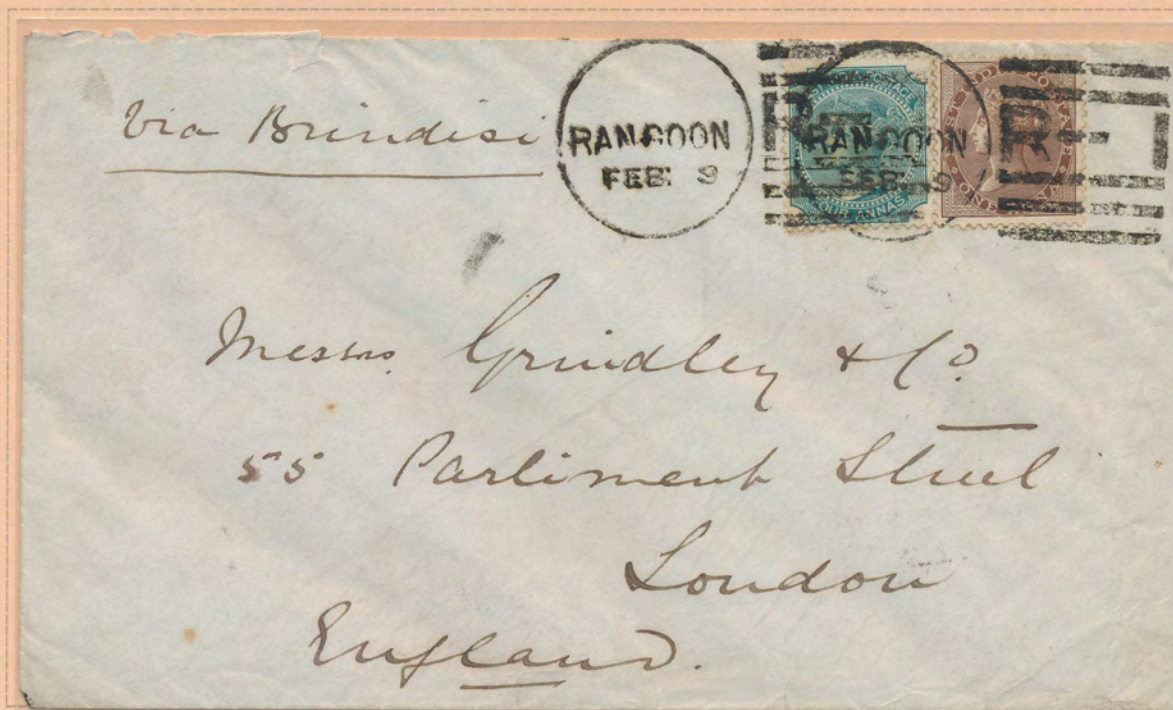 Via Brindisi
RANGOON
FEB. 9
RANGOON
FEB. 9
R
R-1
POSTAGE
FOUR ANNAS
Messrs. Grindley & Co.
55 Parliment Street
London
England.